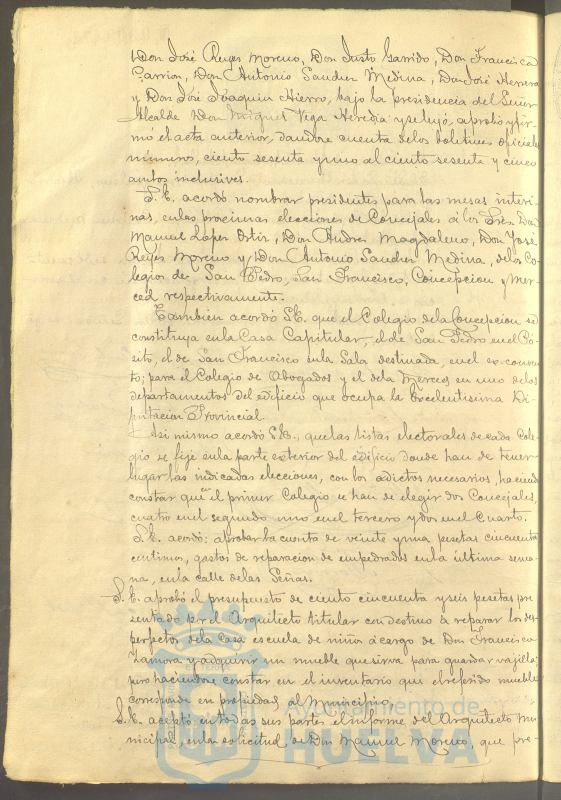 Don José Reyes Moreno, Don Justo Garrido, Don Francisco
Carrion, Don Antonio Sanchez Medina, Don José Herrera
y Don José Joaquin Hierro, bajo la presidencia del Señor
Alcalde Don Miguel Vega Heredia y se leyó, aprobó y fir-
mó el acta anterior, dandose cuenta de los boletines oficiales
números, ciento sesenta y uno al ciento sesenta y cinco
ambos inclusives.
S. E. acordó nombrar presidentes para las mesas interi-
nas, en las proximas elecciones de Concejales á los Sres. Don
Manuel Lopez Ortiz, Don Andres Magdaleno, Don José
Reyes Moreno y Don Antonio Sanchez Medina, de los Co-
legios de San Pedro, San Francisco, Concepcion y Mer-
ced respectivamente.
Tambien acordó S.E. que el Colegio de la Concepcion se
constituya en la Casa Capitular, el de San Pedro en el Pó-
sito, el de San Francisco en la Sala destinada, en el ex-conven-
to; para el Colegio de Abogados y el de la Merced en uno de los
departamentos del edificio que ocupa la Excelentisima Di-
putacion Provincial.
Asi mismo acordó S.E., que las listas electorales de cada Cole-
gio se fije en la parte exterior del edificio donde han de tener
lugar las indicadas elecciones, con los adictos necesarios, haciendo
constar que el primer Colegio se han de elegir dos Concejales,
cuatro en el segundo uno en el tercero y dos en el Cuarto.
S.E. acordó: aprobar la cuenta de veinte y una pesetas cincuenta
centimos, gastos de reparacion de empedrados en la última sema-
na, en la calle de las Señas.
S. E. aprobó el presupuesto de ciento cincuenta y seis pesetas pre-
sentado por el Arquitecto titular con destino a reparar los des-
perfectos de la Casa escuela de niños á cargo de Don Francisco
Zamora y adquirir un mueble que sirva para guardar vajilla;
pero haciendose constar en el inventario que el referido mueble
corresponde en propiedad al Municipio.
S. E. aceptó en todas sus partes el informe del Arquitecto mu-
nicipal, en la solicitud de Don Manuel Moreno, que pre-
Ayuntamiento de
HUELVA